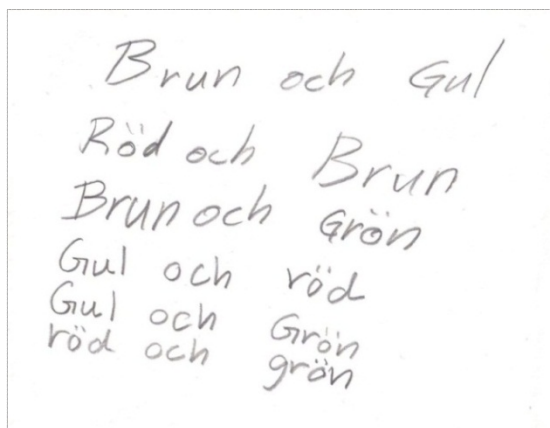 Brun och Gul
Röd och Brun
Brun och Grön
Gul och röd
Gul och Grön
röd och grön